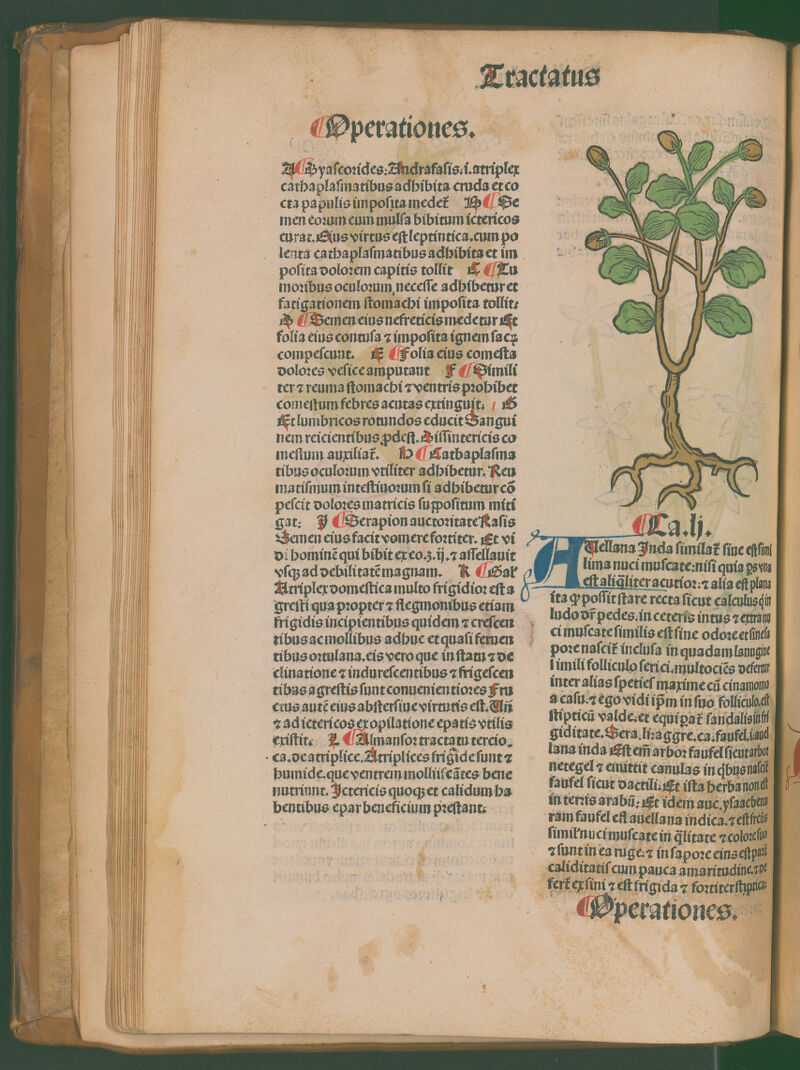 Tractatus
¶Operationes.
A ¶Dyascorides. Andrafasis.i.atriplex
cathaplasmatibus adhibita cruda et co
cta papulis imposita medet᷑ B ¶Se
men eorum cum mulsa bibitum ictericos
curat. Eius virtus est leptintica.cum po
lenta cathaplasmatibus adhibita et im
posita dolorem capitis tollit C ¶Tu
moribus oculorum necesse adhibetur et
fatigationem stomachi imposita tollit:
D ¶Semen eius nefreticis medetur Et
folia eius contusa ⁊ imposita ignem sacꝝ
compescunt. E ¶Folia eius comesta
dolores vesice amputant F ¶Simili
ter ⁊ reuma stomachi ⁊ ventris prohibet
comestum febres acutas extinguit. G
Et lumbricos rotundos educit Sangui
nem reicientibus ꝓdest. Dissintericis co
mestum auxiliat᷑. H ¶Cathaplasma
tibus oculorum vtiliter adhibetur. Reu
matismum intestinorum si adhibetur cō
pescit dolores matricis suppositum miti
gat. J ¶Serapion auctoritate Rasis
Semen eius facit vomere fortiter. Et vi
di hominē qui bibit ex eo.ʒ.ij.⁊ assellauit
vsqꝫ ad debilitatē magnam. K ¶Gal᷑
Atriplex domestica multo frigidior est a
gresti qua propter ⁊ flegmonibus etiam
frigidis incipientibus quidem ⁊ crescen
tibus ac mollibus adhuc et quasi feruen
tibus ortulana.eis vero que in statu ⁊ de
clinatione ⁊ indurescentibus ⁊ frigescen
tibus agrestis sunt conuenientiores Fru
ctus autē eius abstersiue virtutis est. Vn̄
⁊ ad ictericos ex opilatione epatis vtilis
existit. L ¶Almansor tractatu tercio.
ca.de atriplice. Atriplices frigide sunt ⁊
humide.que ventrem mollificātes bene
nutriunt. Ictericis quoqꝫ et calidum ha
bentibus epar beneficium prestant.
¶Ca.lj.
AUellana Jnda similat᷑ siue est simi
lima nuci muscate:nisi quia ps vna
est aliq̄liter acutior:⁊ alia est plana
ita ꝙ possit stare recta sicut calculus q̄ in
ludo dr̄ pedes.in ceteris intus ⁊ extra nu
ci muscate similis est sine odore et sine sa
pore nascit᷑ inclusa in quadam lanugine
simili folliculo serici.multociēs defertur
inter alias species maxime cū cinamomo
a casu.⁊ ego vidi ip̄m in suo folliculo.est
stipticū valde.et equipat᷑ sandalis in fri
giditate. Sera.li:aggre.ca.faufel.i.auel
lana inda Est em̄ arbor faufel sicut arbor
netegel ⁊ emittit canulas in q̄bus nascit᷑
faufel sicut dactili. Et ista herba non est
in terris arabū: Et idem auc.ysaac bena
ram faufel est auellana indica.⁊ est fructus
simil᷑ nuci muscate in q̄litate ⁊ colore suo
⁊ sunt in ea ruge:⁊ in sapore eius est pauci
caliditatis cum pauca amaritudine.⁊ de
fert᷑ ex sini ⁊ est frigida ⁊ fortiter stiptica
¶Operationes.